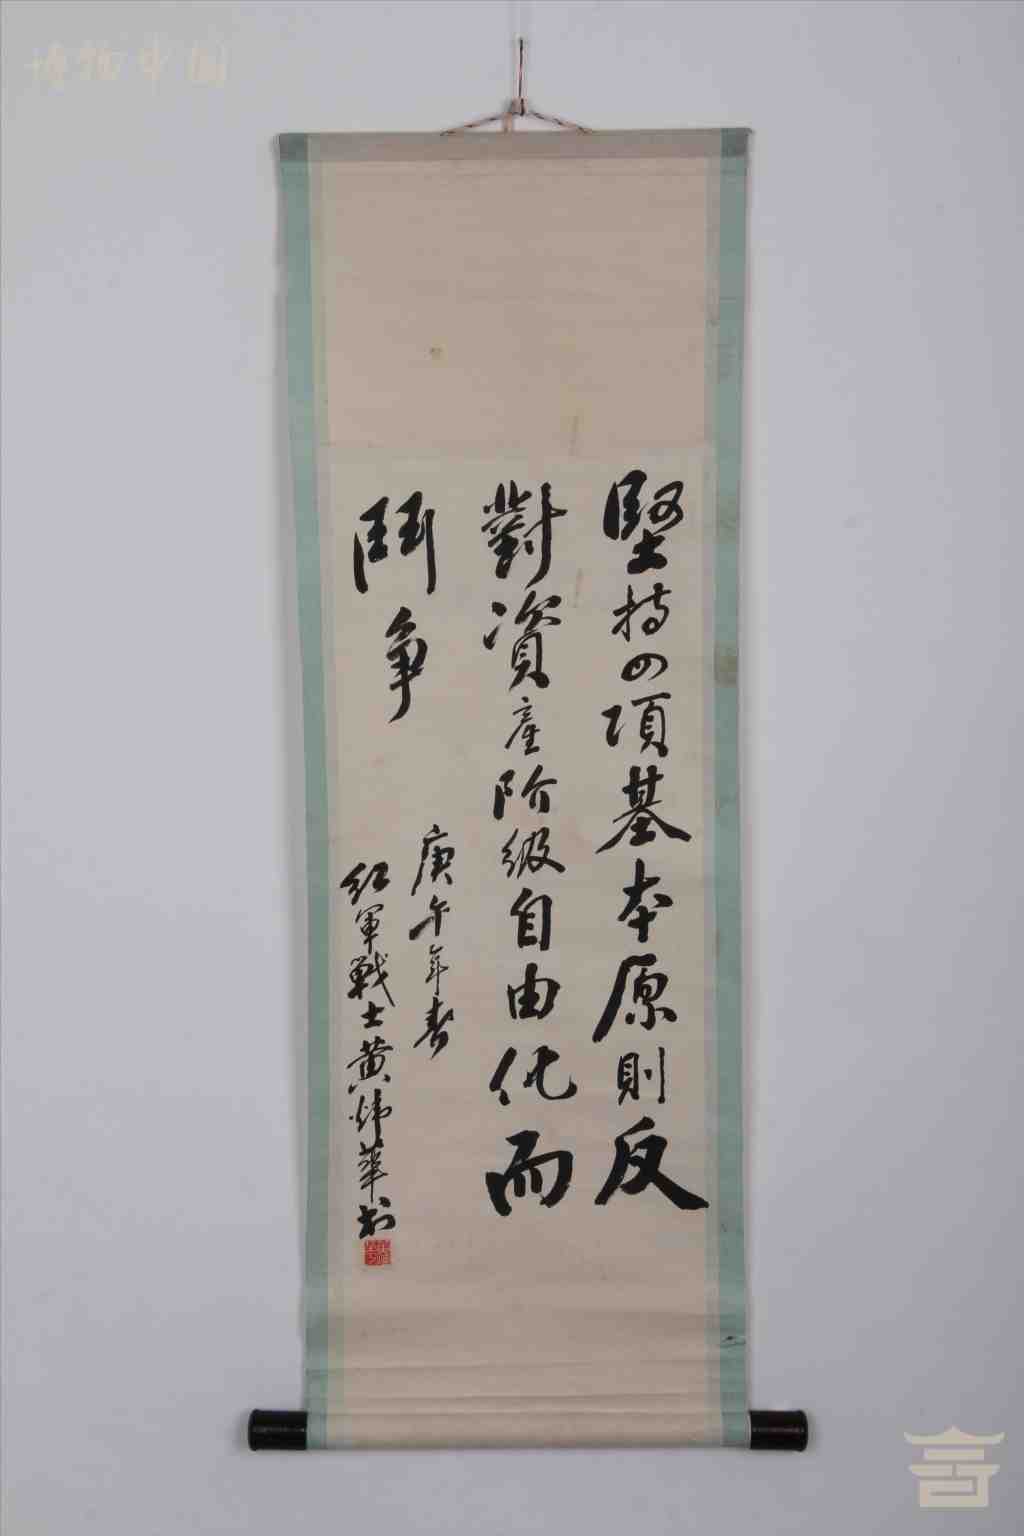 博物中国
堅持四項基本原則反
對資產阶级自由化而
鬥争
庚午年春
红軍戰士黄炜華书